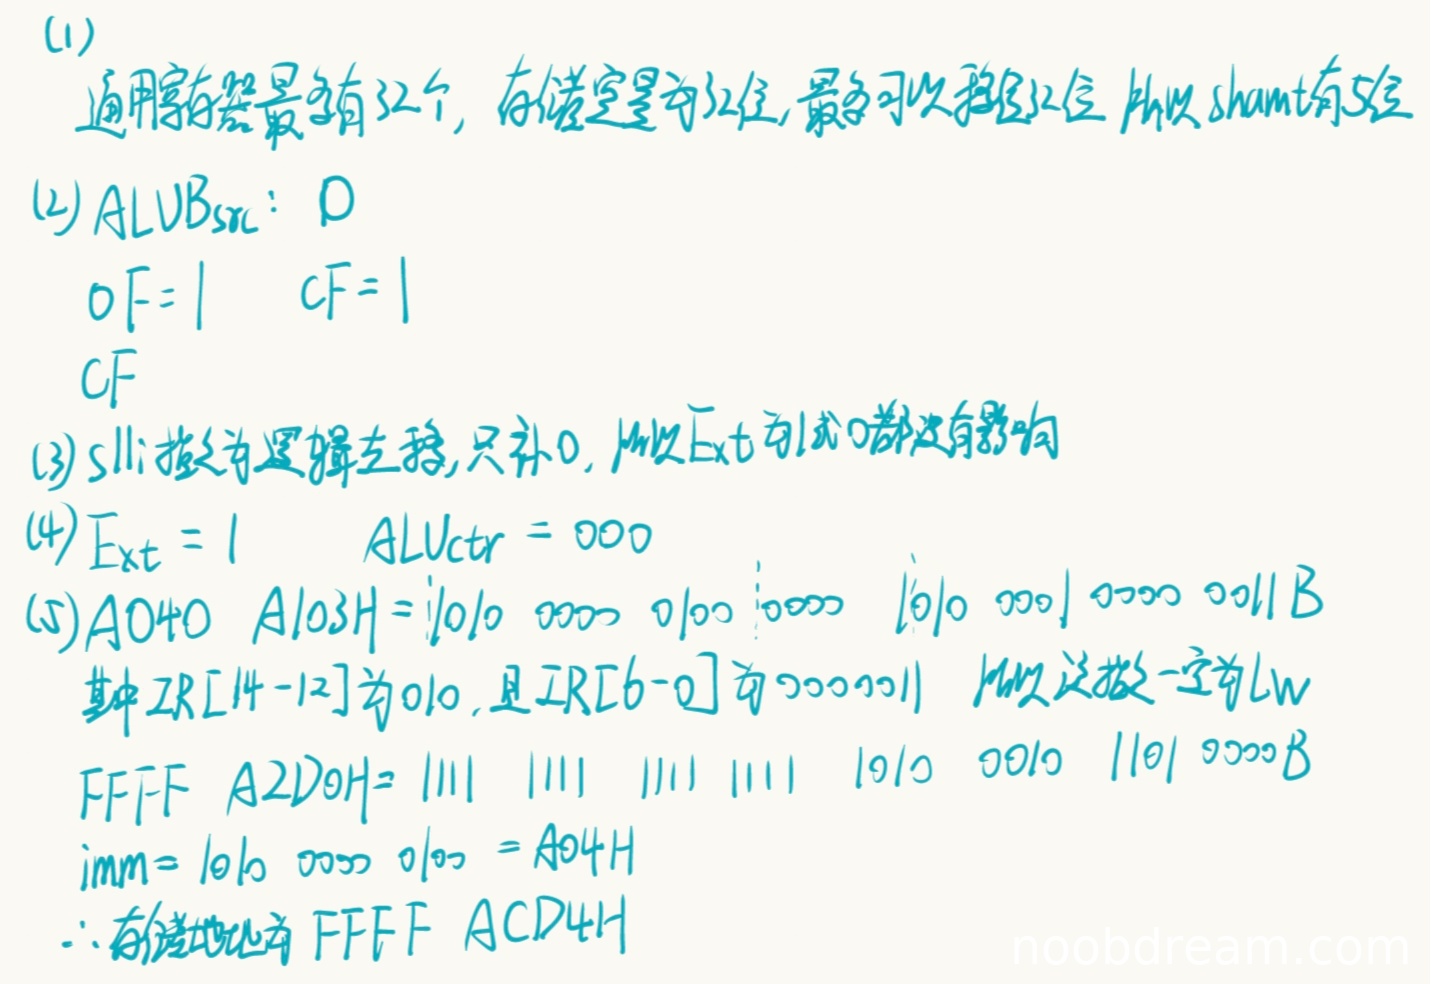 (1)
通用寄存器最多有32个, 存储定量为32位, 最多可以移位32位 所以shamt有5位
(2) ALUBsrc: 0
OF=1 CF=1
CF
(3) slli指令为逻辑左移, 只补0, 所以Ext为1或0都没有影响
(4) Ext = 1 ALUctr = 000
(5) A040 A103H = 1010 0000 0100 0000 1010 0001 0000 0011 B
其中IR[14-12]为010, 且IR[6-0]为0000011 所以该指令一定为LW
FFFF A2D0H = 1111 1111 1111 1111 1010 0010 1101 0000B
imm= 1010 0000 0100 = A04H
∴存储地址为 FFFF ACD4H
noobdream.com